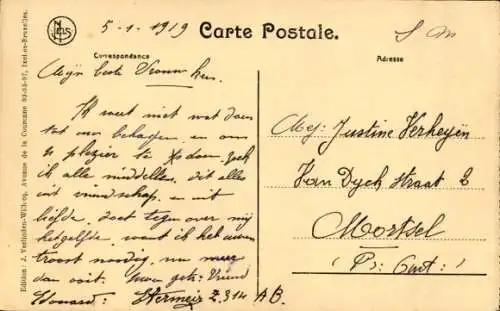 5-1-1919
Carte Postale.
S M
Correspondance
Adresse
Mijn beste Vrouwken.
Ik weet niet wat doen
tot uw behagen, en om
u plezier te doen, zoek
ik alle middellen, dit alles
uit vriendschap, en uit
liefde, doet tegenover mij
hetzelfde, want ik het uwen
troost noodig, nu meer
dan ooit: Uwe
Edouard: Stermeir Z.314 A B.
Mej: Justine Verheyen
Van Dyck Straat 2
Mortsel
(Pr: Ant:)
Edition: J. Verlinden-Wilh-op, Avenue de la Couronne, Ixelles-Bruxelles.